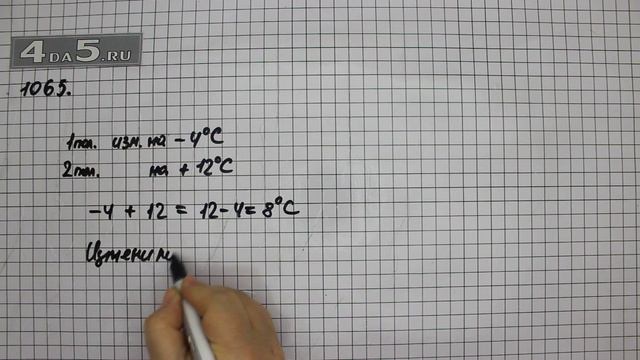 4DA5.RU
1065.
1пол. изм. на -4°C
2пол. на + 12°C
-4 + 12 = 12-4=8°C
Изменил